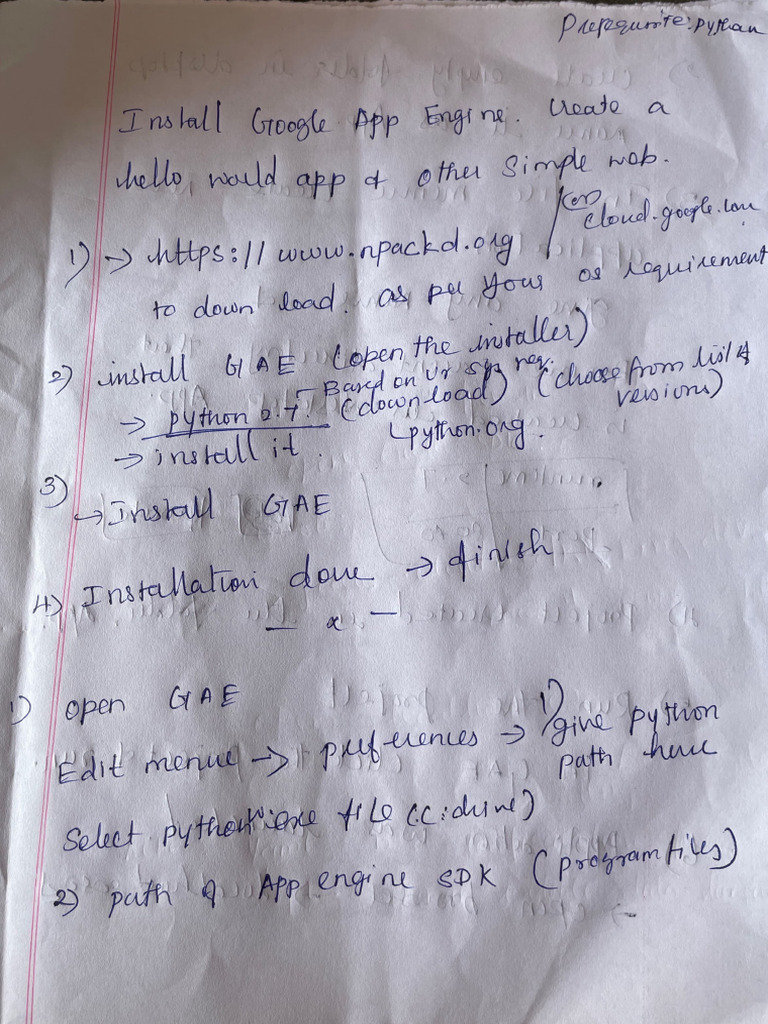 Prerequrite: pythan
Install Google App Engine. Create a
hello world app & other simple web.
1) → https://www.npackd.org / (or) cloud.google.com
to down load. as per your os requirement
2) install GAE (open the installer)
→ python 2.7. Based on ur sys req. (download) (choose from list of versions)
→ install it. python.org.
3)
→ Install GAE
4) Installation done → finish
— x —
1) open GAE
Edit menue → preferences → 1) give python path here
Select python exe file (c:drive)
2) path of App engine SDK (program files)